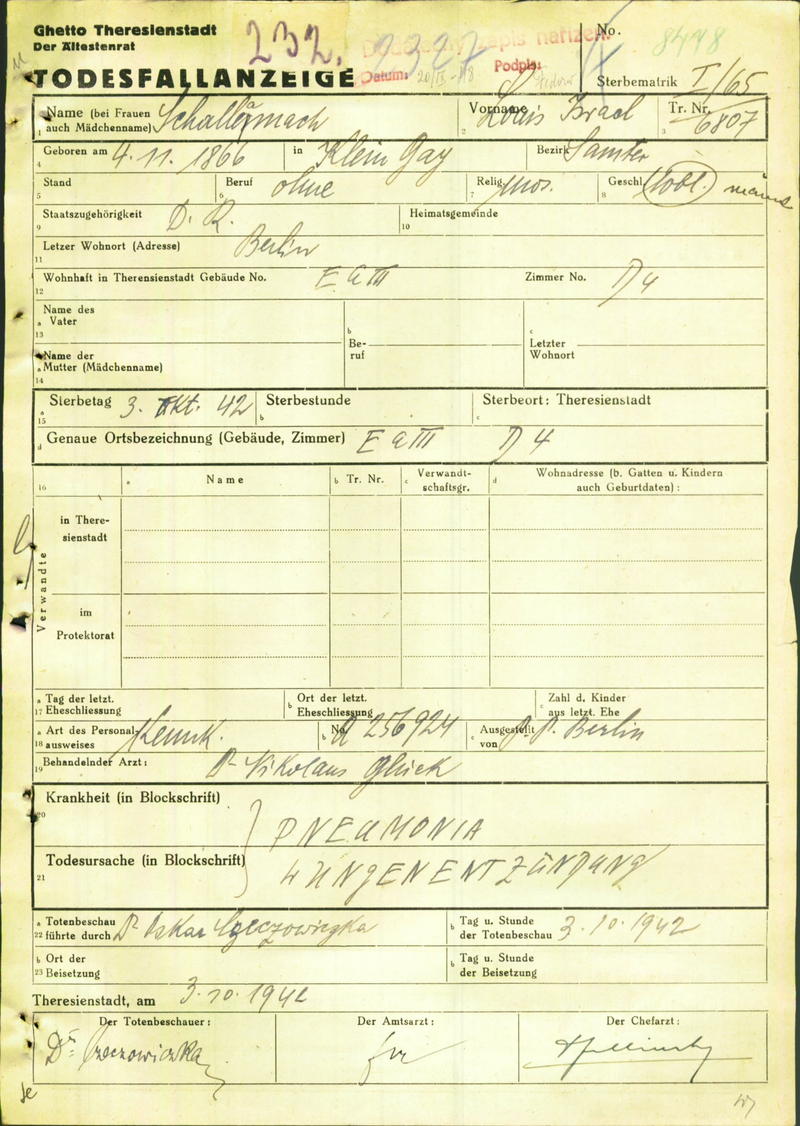 Ghetto Theresienstadt
Der Ältestenrat
232.
Datum:
Podpis:
No. 8448
TODESFALLANZEIGE
Sterbematrik I/65
Name (bei Frauen auch Mädchenname) Vorname Louis Israel Tr. Nr. 6807
1 2 3
4 Geboren am 4. 11. 1866 in Klein Gay Bezirk Samter
Stand Beruf ohne Relig. mos. Geschl.
5 6 7 8
Staatszugehörigkeit D. R. Heimatsgemeinde
9 10
Letzer Wohnort (Adresse) Berlin
11
Wohnhaft in Theresienstadt Gebäude No. E a III Zimmer No.
12
Name des
a Vater
13
b Be-
ruf
c Letzter
Wohnort
Name der
a Mutter (Mädchenname)
14
a Sterbetag 3. Okt. 42 b Sterbestunde c Sterbeort: Theresienstadt
15
d Genaue Ortsbezeichnung (Gebäude, Zimmer) E a III
16 a Name b Tr. Nr. c Verwandt-
schaftsgr. d Wohnadresse (b. Gatten u. Kindern
auch Geburtdaten) :
Verwandte
in There-
sienstadt
im
Protektorat
a Tag der letzt. b Ort der letzt. c Zahl d. Kinder
17 Eheschliessung Eheschliessung aus letzt. Ehe
a Art des Personal- b No. A 256924 c Ausgestellt
18 ausweises Kennk. von P. P. Berlin
19 Behandelnder Arzt: Dr Nikolaus Glück
Krankheit (in Blockschrift)
20
PNEUMONIA
Todesursache (in Blockschrift)
21
LUNGENENTZÜNDUNG
a Totenbeschau b Tag u. Stunde
22 führte durch Dr Oskar der Totenbeschau 3. 10. 1942
b Ort der b Tag u. Stunde
23 Beisetzung der Beisetzung
Theresienstadt, am 3. 10. 1942
Der Totenbeschauer: Der Amtsarzt: Der Chefarzt:
Dr